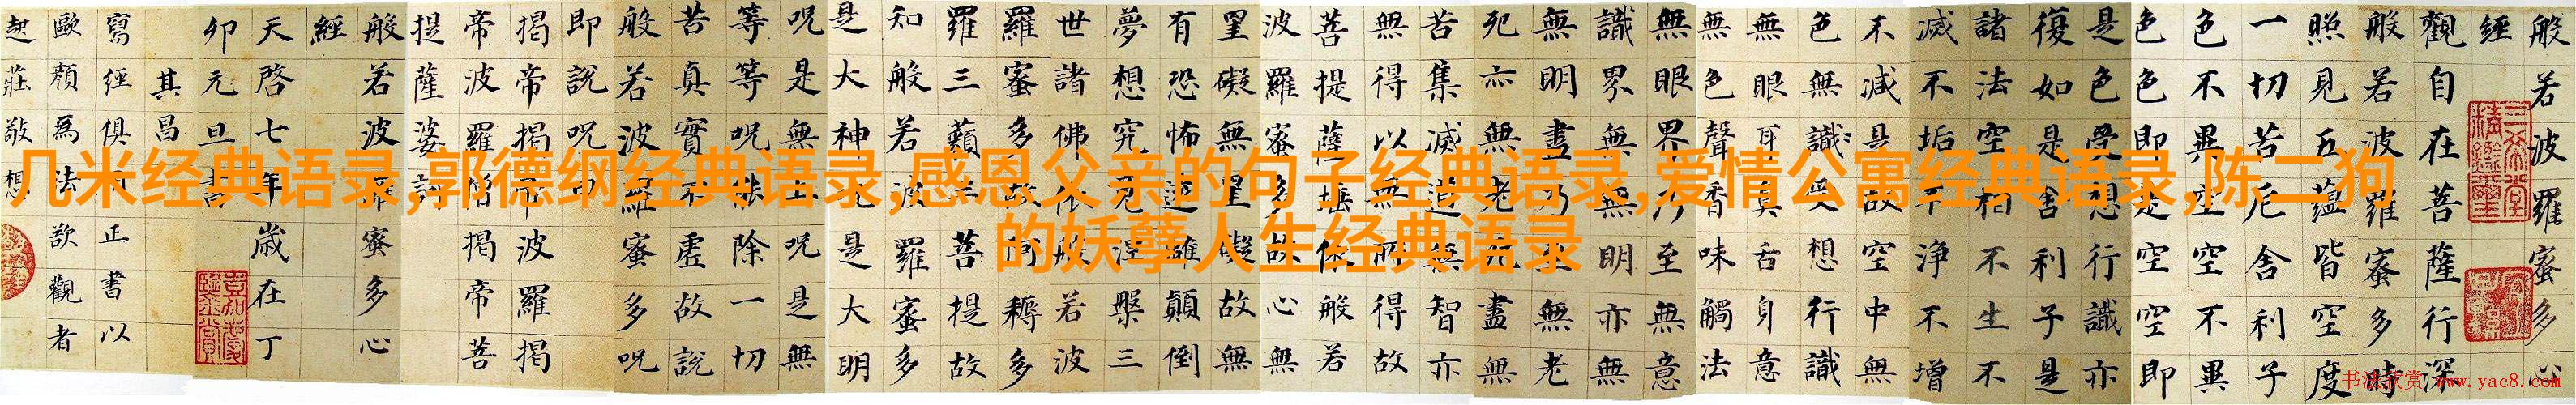 般若波羅蜜多心
經
觀自在菩薩行深
般若波羅蜜多時
照見五蘊皆空度
一切苦厄舍利子
色不異空空不異
色色即是空空即
是色受想行識亦
復如是舍利子是
諸法空相不生不
滅不垢不淨不增
不減是故空中無
色無識无想行識
無眼耳鼻舌身意
無色聲香味觸法
無眼界乃至無意
識界無無明亦無
無明盡乃至無老
死亦無老死盡無
苦集滅道無智亦
無得以無所得故
菩提薩埵依般若
波羅蜜多故心無
罣礙無罣礙故無
有恐怖遠離顛倒
夢想究竟涅槃三
世諸佛依般若波
羅蜜多故阿耨多
羅三藐三菩提故
知般若波羅蜜多
是大神呪是大明
呪是無上呪是無
等等呪能除一切
苦真實不虛故說
般若波羅蜜多呪
即說呪曰
揭帝揭帝波羅揭
帝波羅僧揭帝菩
提薩婆訶
般若波羅蜜多心
經
天啓七年歲在丁
卯元旦書
其昌
寫經俱正書以
歐顏爲法欲觀者
起莊敬想
几米经典语录,郭德纲经典语录,感恩父亲的句子经典语录,爱情公寓经典语录,陈二狗
的妖孽人生经典语录
书法欣赏 www.yac8.com